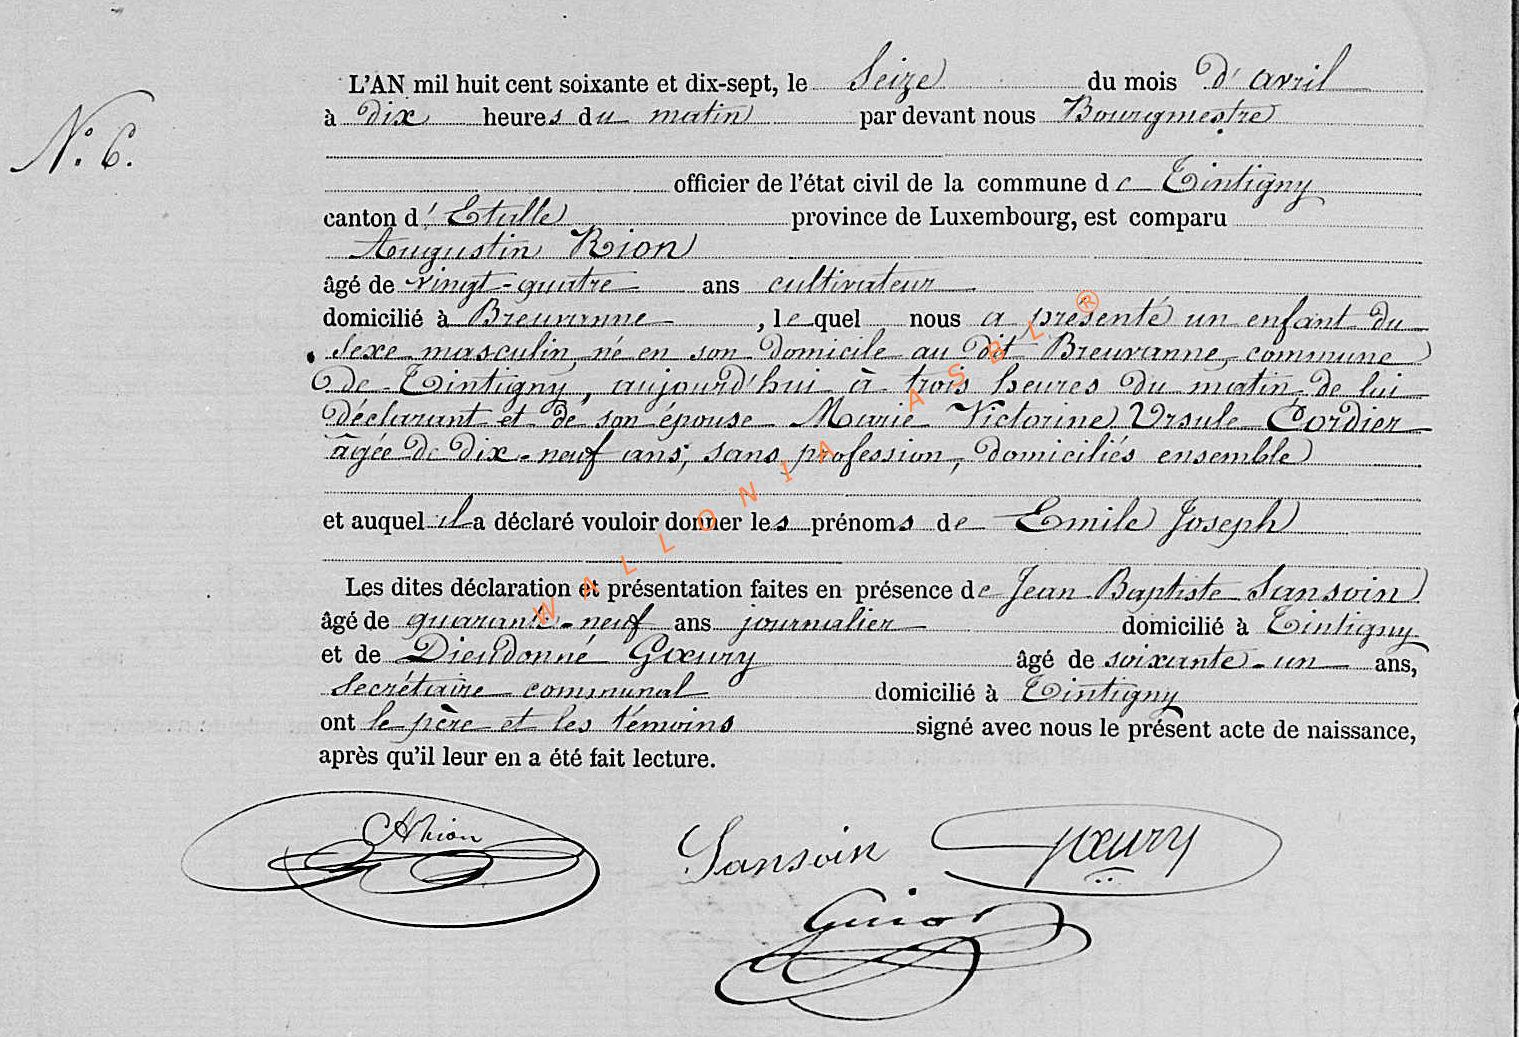 L'AN mil huit cent soixante et dix-sept, le Seize du mois d'avril
N.° 6.
à dix heures du matin par devant nous Bourgmestre
officier de l'état civil de la commune de Tintigny
canton d'Etalle province de Luxembourg, est comparu
Augustin Rion
âgé de vingt-quatre ans cultivateur
domicilié à Breuvanne, lequel nous a présenté un enfant du
sexe masculin, né en son domicile au dit Breuvanne, commune
de Tintigny, aujourd'hui à trois heures du matin, de lui
déclarant et de son épouse Marie Victorine Ursule Cordier
âgée de dix-neuf ans, sans profession, domiciliés ensemble
et auquel il a déclaré vouloir donner les prénoms de Emile Joseph
Les dites déclaration et présentation faites en présence de Jean Baptiste Sansoin
âgé de quarante-neuf ans journalier domicilié à Tintigny
et de Dieudonné Gœury âgé de soixante-un ans,
Secrétaire communal domicilié à Tintigny
ont le père et les témoins signé avec nous le présent acte de naissance,
après qu'il leur en a été fait lecture.
ARion Sansoin Gœury
WALLONIA ASBL ®